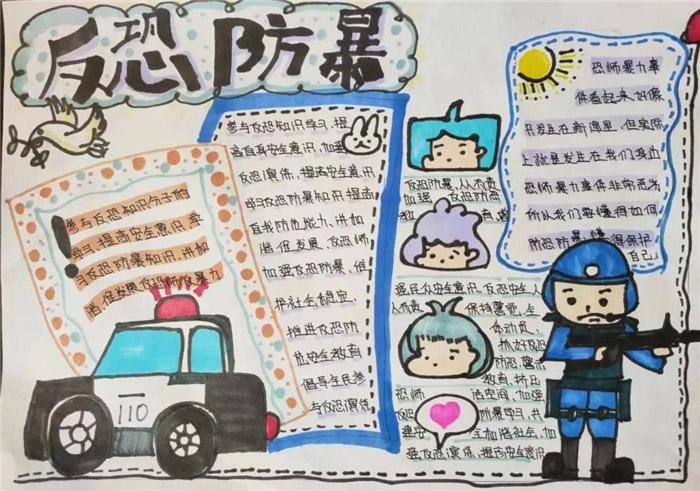 反恐防暴
参与反恐知识句子们
学习提高安全意识,学
习反恐防暴知识,讲和
谐,促发展,反恐怖反暴力
110
参与反恐知识学习,提
高自身安全意识,加强
反恐演练,提高安全意识
学习反恐防暴知识提高
自我防范能力,讲和
谐,促发展,反恐怖
加强反恐防暴,维
护社会稳定,
推进反恐防
范安全教育
倡导全民参
与反恐演练
反恐防暴,人人有责
加强 反恐防范
教 育,增
强民众安全意识,反恐安全,人
人有责 保持警觉,全
体动员,
抓好反恐
防恐警示
教育,挤压
恐怖 活空间,加强
反恐 防暴学习,共
建安 全和谐社会,加
强反恐演练,提高安全意识
恐怖暴力事
件看起来好像
只发生在新闻里,但实际
上就是发生在我们身边
恐怖暴力事件非常可怕
所以我们要懂得如何
防恐防暴,懂得保护
自己.